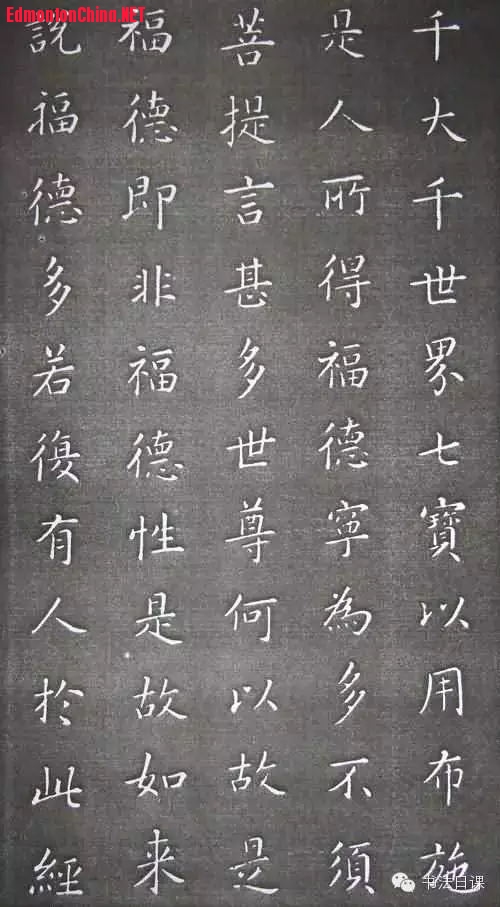 千大千世界七寶以用布施
是人所得福德寧為多不須
菩提言甚多世尊何以故是
福德即非福德性是故如来
說福德多若復有人於此經
EdmontonChina.NET
书法日课